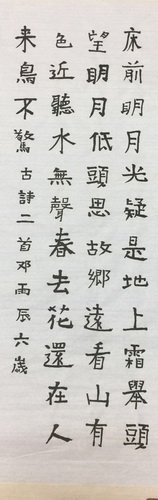 床前明月光疑是地上霜舉頭
望明月低頭思故鄉遠看山有
色近聽水無聲春去花還在人
來鳥不驚古詩二首邓雨辰六歲